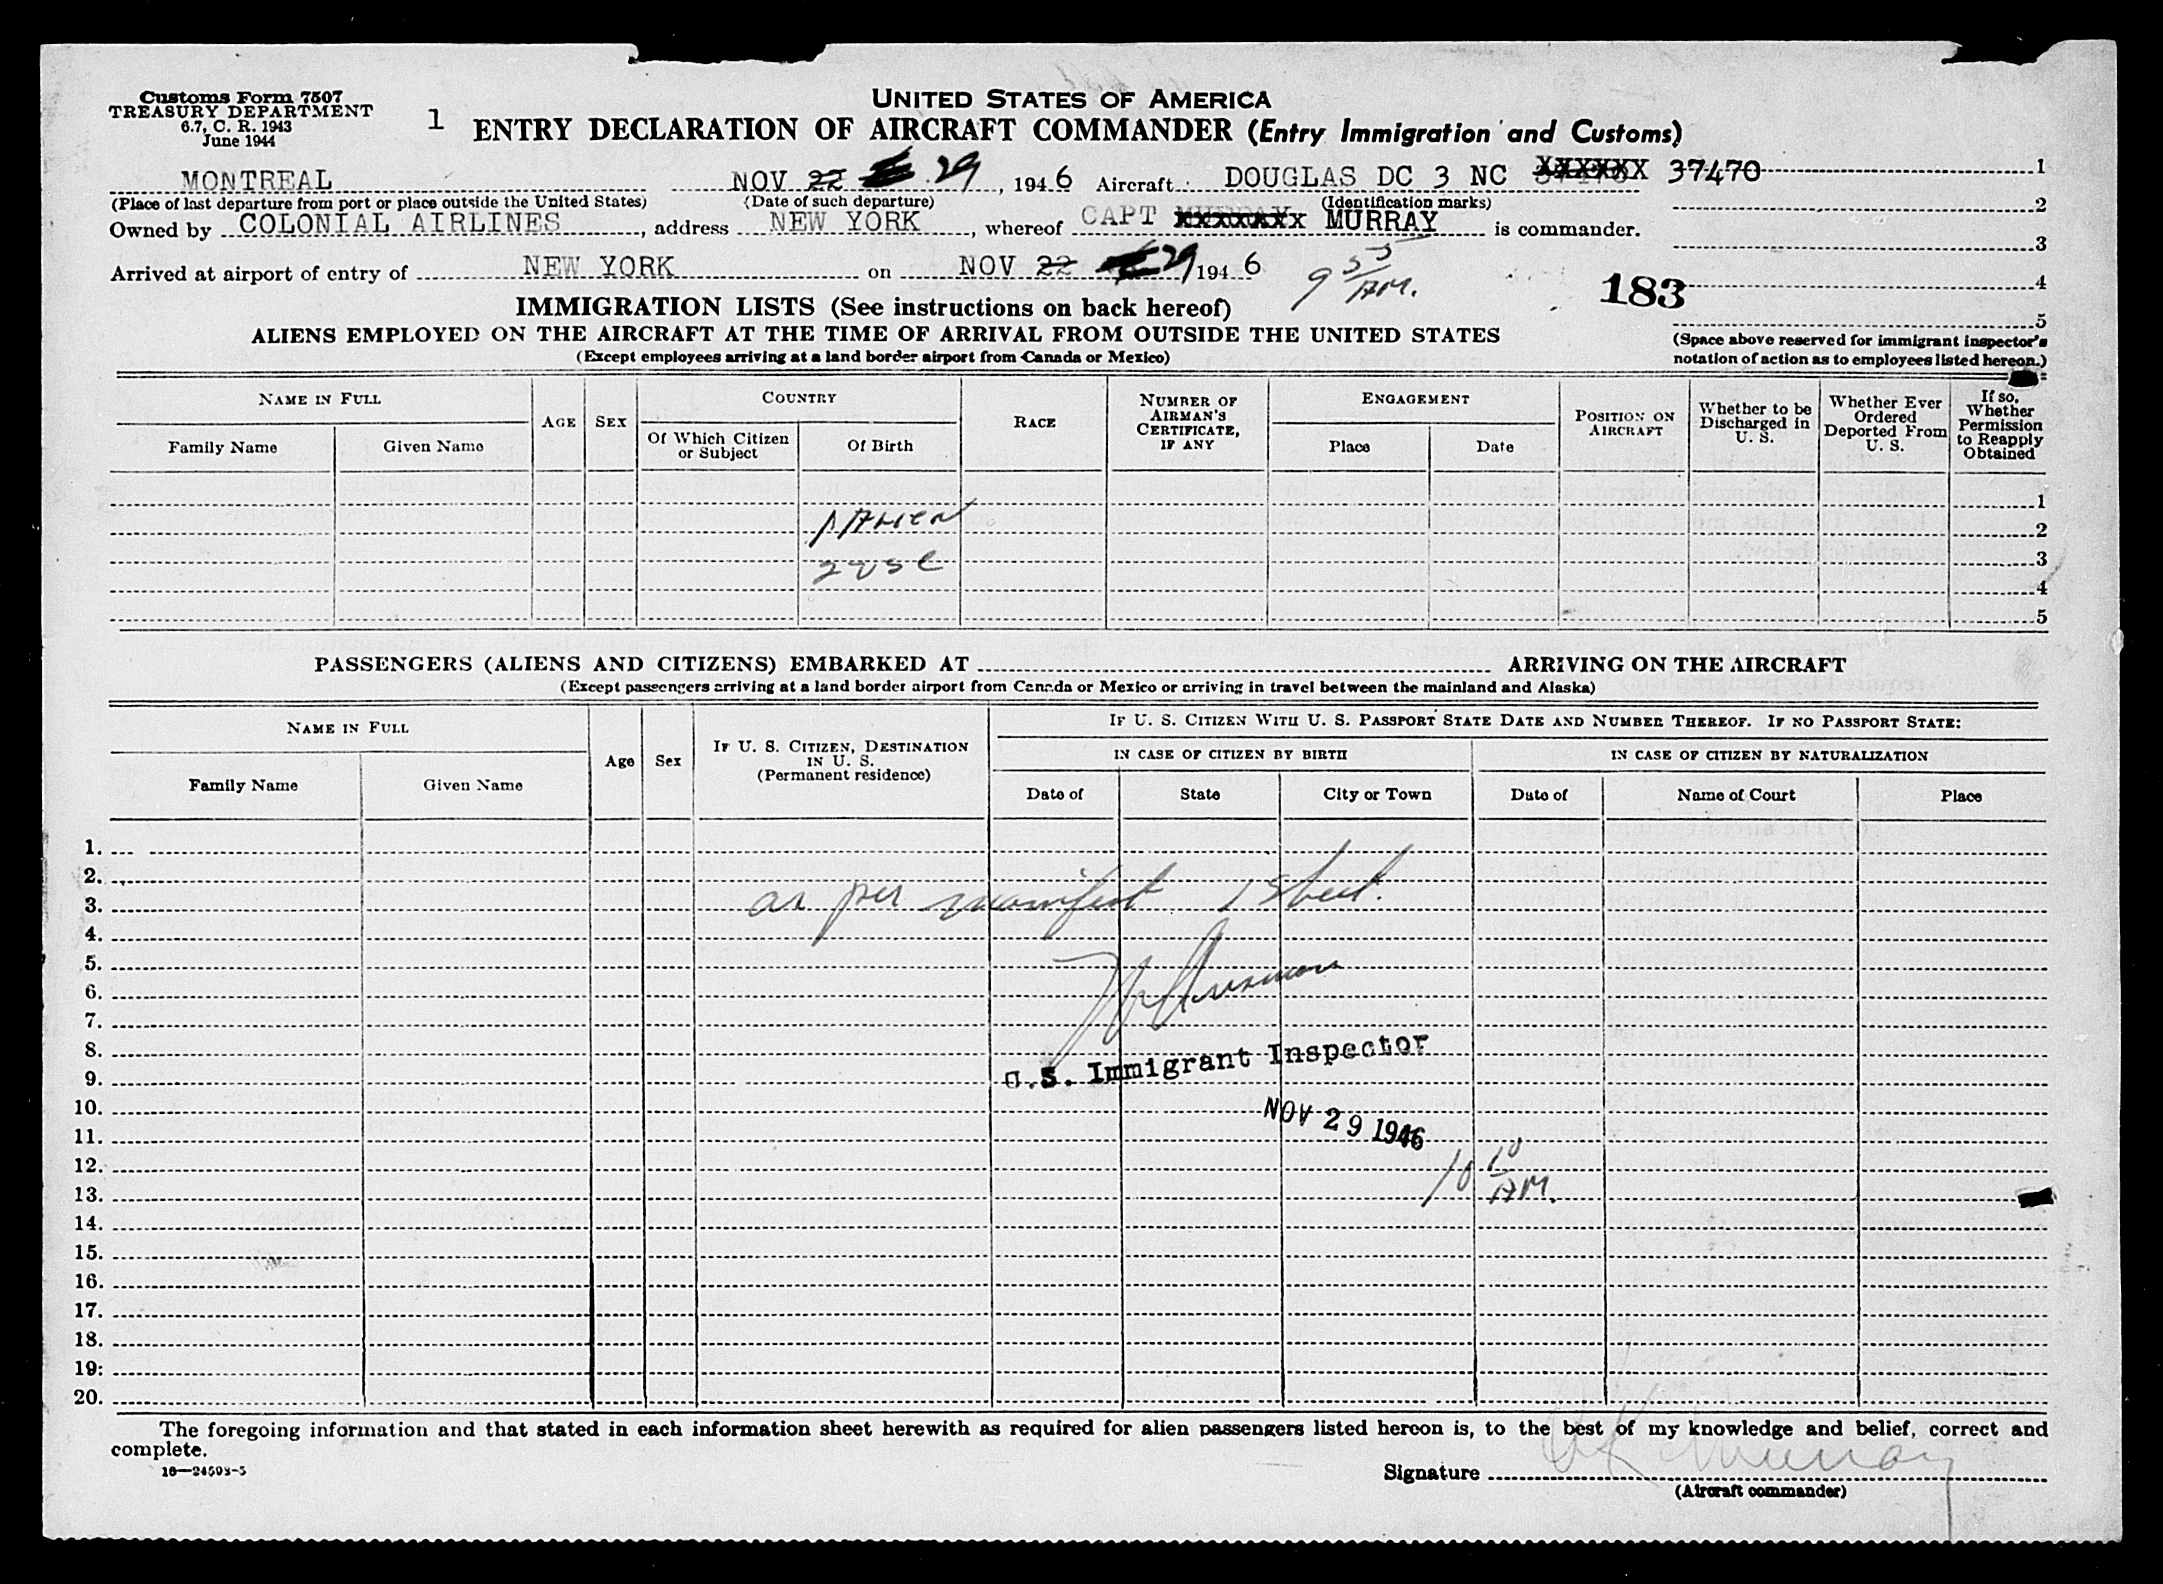 Customs Form 7507
TREASURY DEPARTMENT
6.7, C. R. 1943
June 1944
UNITED STATES OF AMERICA
1 ENTRY DECLARATION OF AIRCRAFT COMMANDER (Entry Immigration and Customs)
MONTREAL NOV 22 29, 1946 Aircraft DOUGLAS DC 3 NC XXXXXX 37470 1
(Place of last departure from port or place outside the United States) (Date of such departure) (Identification marks) 2
Owned by COLONIAL AIRLINES, address NEW YORK, whereof CAPT XXXXXXX MURRAY is commander.
3
Arrived at airport of entry of NEW YORK on NOV 22 29 1946 9 55 AM. 183 4
IMMIGRATION LISTS (See instructions on back hereof)
5
ALIENS EMPLOYED ON THE AIRCRAFT AT THE TIME OF ARRIVAL FROM OUTSIDE THE UNITED STATES
(Except employees arriving at a land border airport from Canada or Mexico)
(Space above reserved for immigrant inspector's
notation of action as to employees listed hereon.)
NAME IN FULL
Family Name
Given Name
AGE
SEX
COUNTRY
Of Which Citizen
or Subject
Of Birth
RACE
NUMBER OF
AIRMAN'S
CERTIFICATE,
IF ANY
ENGAGEMENT
Place
Date
POSITION ON
AIRCRAFT
Whether to be
Discharged in
U. S.
Whether Ever
Ordered
Deported From
U. S.
If so,
Whether
Permission
to Reapply
Obtained
1
1 Alien 2
2 USC 3
4
5
PASSENGERS (ALIENS AND CITIZENS) EMBARKED AT ARRIVING ON THE AIRCRAFT
(Except passengers arriving at a land border airport from Canada or Mexico or arriving in travel between the mainland and Alaska)
NAME IN FULL
Family Name
Given Name
Age
Sex
IF U. S. CITIZEN, DESTINATION
IN U. S.
(Permanent residence)
IF U. S. CITIZEN WITH U. S. PASSPORT STATE DATE AND NUMBER THEREOF. IF NO PASSPORT STATE:
IN CASE OF CITIZEN BY BIRTH
Date of
State
City or Town
IN CASE OF CITIZEN BY NATURALIZATION
Date of
Name of Court
Place
1.
2.
3. as per manifest 1 sheet.
4.
5.
6.
7.
8.
9. U.S. Immigrant Inspector
10.
11. NOV 29 1946
12.
13. 10 10 AM.
14.
15.
16.
17.
18.
19.
20.
The foregoing information and that stated in each information sheet herewith as required for alien passengers listed hereon is, to the best of my knowledge and belief, correct and
complete.
16—24598-5
Signature Murray
(Aircraft commander)